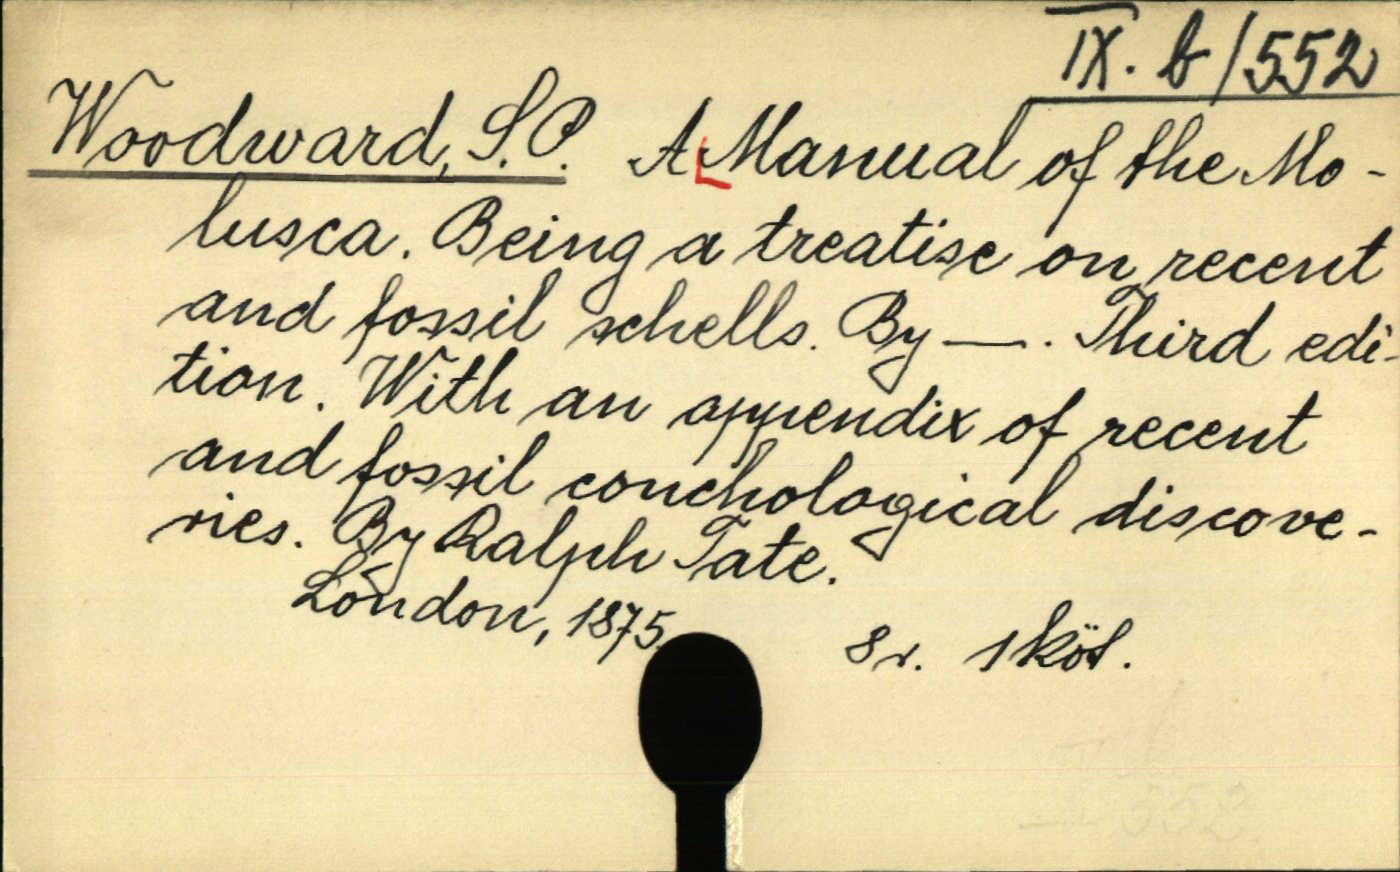 IX. b/552
Woodward, S. P. A Manual of the Mo-
lusca. Being a treatise on recent
and fossil schells. By —. Third edi-
tion. With an appendix of recent
and fossil conchological discove-
ries. By Ralph Tate.
London, 1875.
8r. 1 köt.